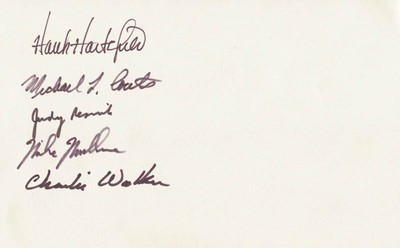 Hank Hartsfield
Michael L. Coats
Judy Resnik
Mike Mullane
Charlie Walker